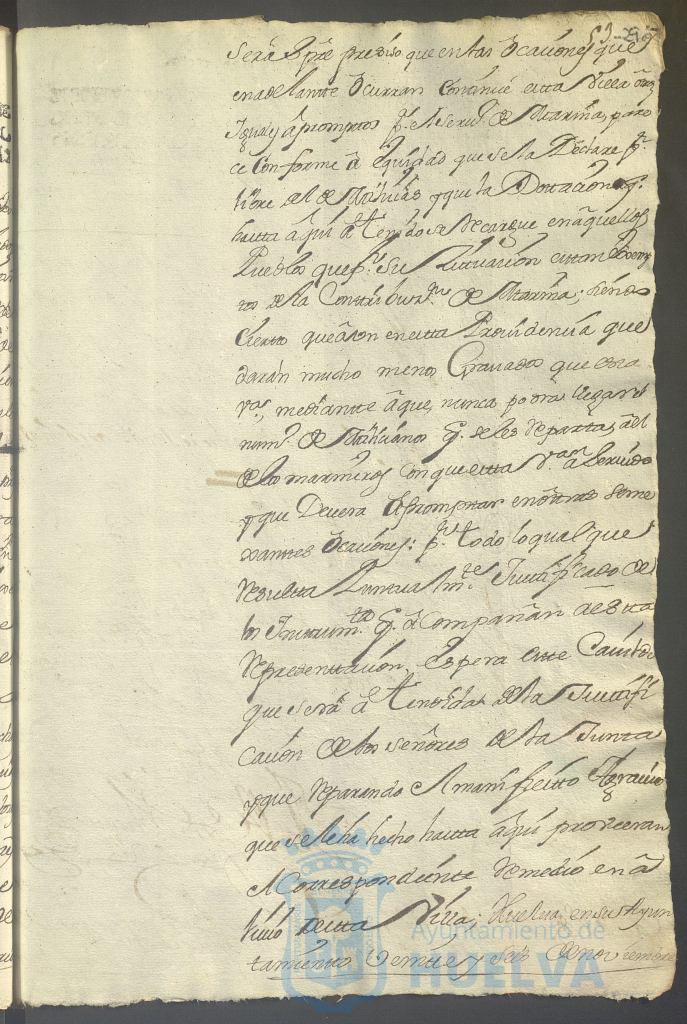 53
será spre preciso que en las ocaciones que
en adelante ocurran continue esta Villa
Iguales aprompttos pa el serv.º de Marina, pare
ce conforme a equidad que se la declare pr
libre del de Milicias y que la Dotacion q.
hasta aqui a tenido se recargue en aquellos
Pueblos que pr su situacion estan essen
tos de la Contribuz.on de Marina; siendo
cierto que aun en esta Providencia que
daran mucho menos Gravados que esta
va, mediante a que, nunca podra llegar el
num.º de Milicianos q. se les reparta, a el
de los marineros con que esta va a servido
y que devera aprompttar en otras seme
xantes ocaciones: pr todo lo qual que
resulta puntualm.te Justificado de
los Instrum.tos q. acompañan a esta
Representacion, espera este Cavildo
que será atendida de la Justifi
cacion de los señores de la Junta
y que reparando el manifiesto Agravio
que se le ha hecho hasta aqui proveeran
el correspondiente remedio en a
livio de esta Villa; Huelva en su Ayun
tamiento veinte y seis de noviembre
Ayuntamiento de
HUELVA